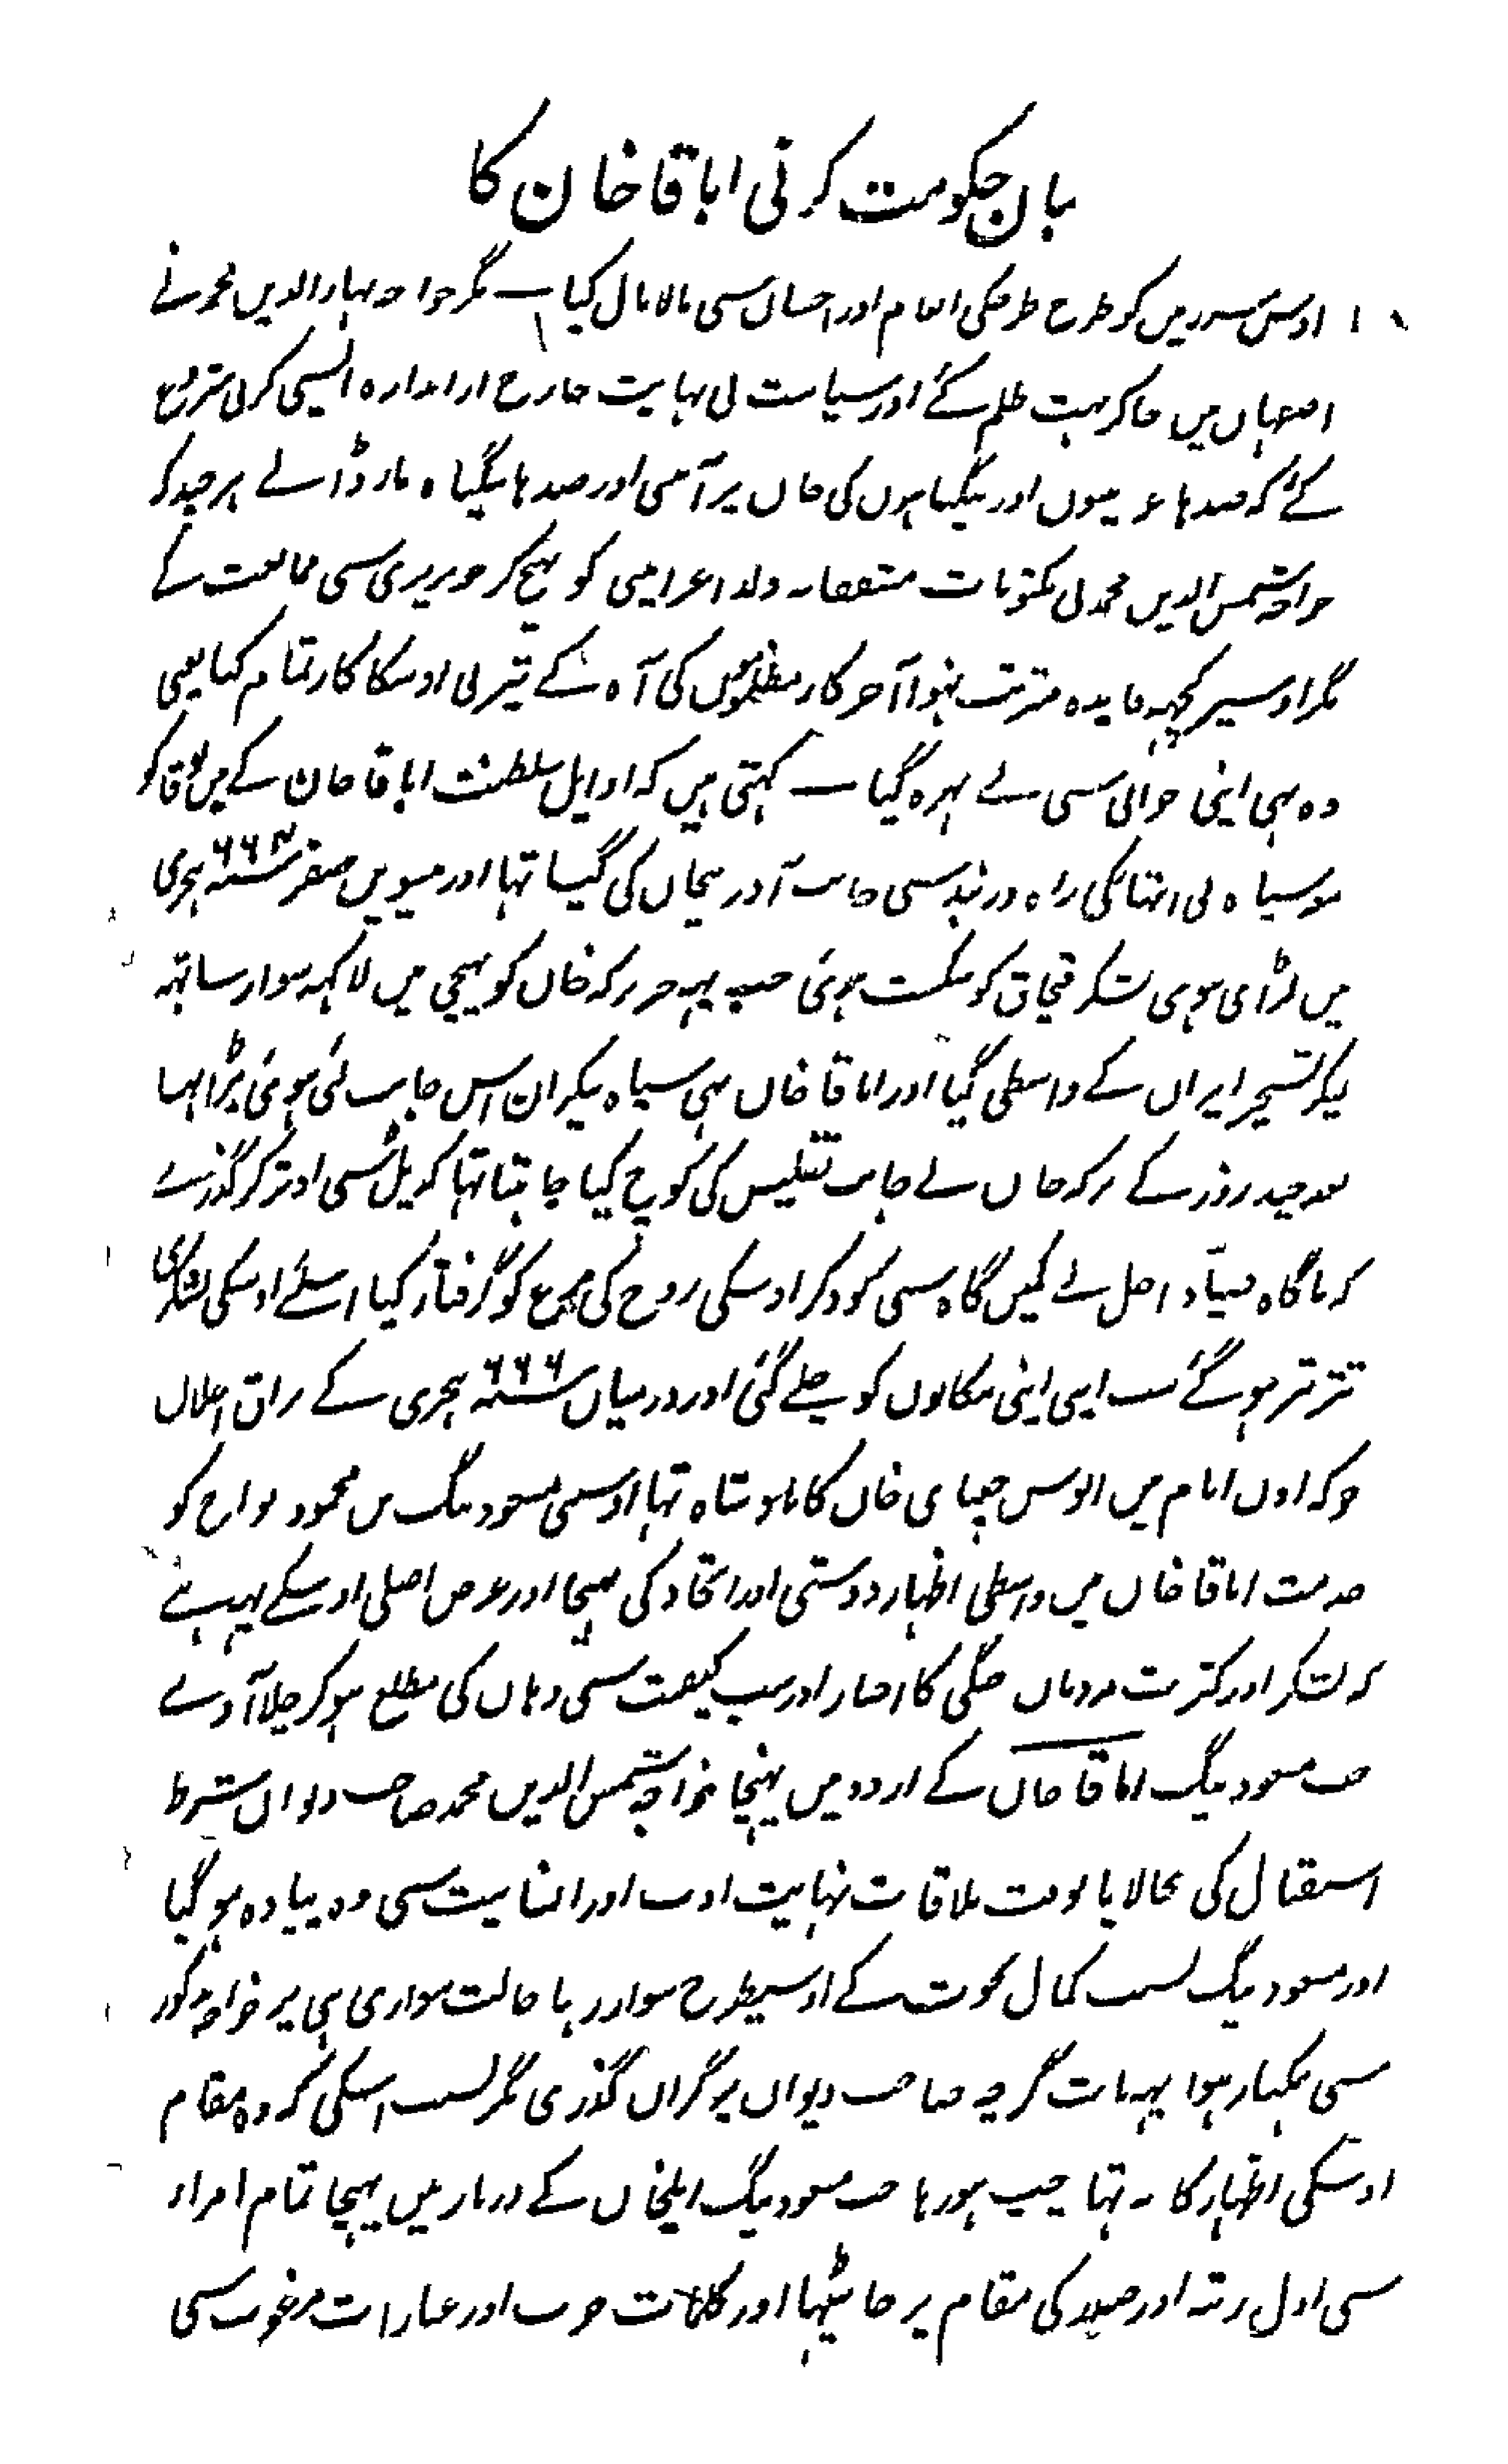 بیان حکومت کرنی اباقا خان کا
اوس سرزمین کو طرح طرحکی انعام اور احسان سی مالامال کیا ـــ مگر خواجہ بہاء الدین محمد نے
اصفہان میں جاکر بہت ظلم کئے اور سیاست بی نہایت خارج از اندازہ ایسی کرنی شروع
کئے کہ صدہا غریبوں اور بیگناہوں کی جان پر آ بنی اور صدہا بیگناہ مار ڈالے ہر چند کہ
خواجہ شمس الدین محمد نی مکتوبات مشفقانہ ولد اعز امی کو بھیج کر خونریزی سی ممانعت کے
مگر اوسپر کچھہ فایدہ مترتب نہوا آخر کار مظلوموں کی آہ کے تیر نی اوسکا کار تمام کیا یعنی
وہ بہی اپنی جوانی سی بے بہرہ گیا ـــ کہتی ہیں کہ اوایل سلطنت اباقا خان کے میں نوقا کو
سپاہ بی انتہا کی راہ دربند سی جانب آذربیجان کی گیا تہا اور بیسویں صفر سنہ ۶۶۳ ہجری
میں لڑائی ہوی لشکر قبچاق کو شکست ہوئی جب یہہ خبر برکہ خان کو پہنچی تین لاکہہ سوار ساتہہ
لیکر تسخیر ایران کے واسطی گیا اور اباقا خان بہی سپاہ بیکران اس جانب لئی ہوئی پڑا تہا
بعد چند روز کے برکہ خان نے جانب تفلیس کی کوچ کیا چاہتا تہا کہ پل سی اوتر کر گذرے
کہ ناگاہ صیاد اجل نے کمین گاہ سی کود کر اوسکی روح کی مرغ کو گرفتار کیا اسلئے اوسکی لشکری
تتر بتر ہو گئے سب اپنی اپنی مکانوں کو چلے گئی اور درمیان سنہ ۶۶۶ ہجری کے براق اغلان
جو کہ اون ایام میں الوس چغتای خان کا بادشاہ تہا اوسنی مسعود بیگ بن محمود یلواج کو
خدمت اباقا خان میں واسطی اظہار دوستی اور اتحاد کی بھیجا اور غرض اصلی اوسکے یہہ ہے
کہ لشکر اور کثرت مردمان جنگی کا اخبار اور سب کیفیت سی وہاں کی مطلع ہو کر چلا آوے
جب مسعود بیگ اباقا خان کے اردو میں پہنچا خواجہ شمس الدین محمد صاحب دیوان شرط
استقبال کی بجا لایا بوقت ملاقات نہایت ادب اور انسانیت سی وہ پیادہ ہو گیا
اور مسعود بیگ بسبب کمال نخوت کے اوسیطرح سوار رہا حالت سواری ہی پر خواجہ مذکور
سی بکنار ہوا یہہ بات گرچہ صاحب دیوان پر گراں گذری مگر بسبب اسکی کہ وہ مقام
اوسکی اظہار کا نہ تہا چپ ہو رہا جب مسعود بیگ ایلخان کے دربار میں پہنچا تمام امراء
سی اول رتبہ اور صدر کی مقام پر جا بیٹہا اور کلمات خوب اور عبارات مرغوب سی